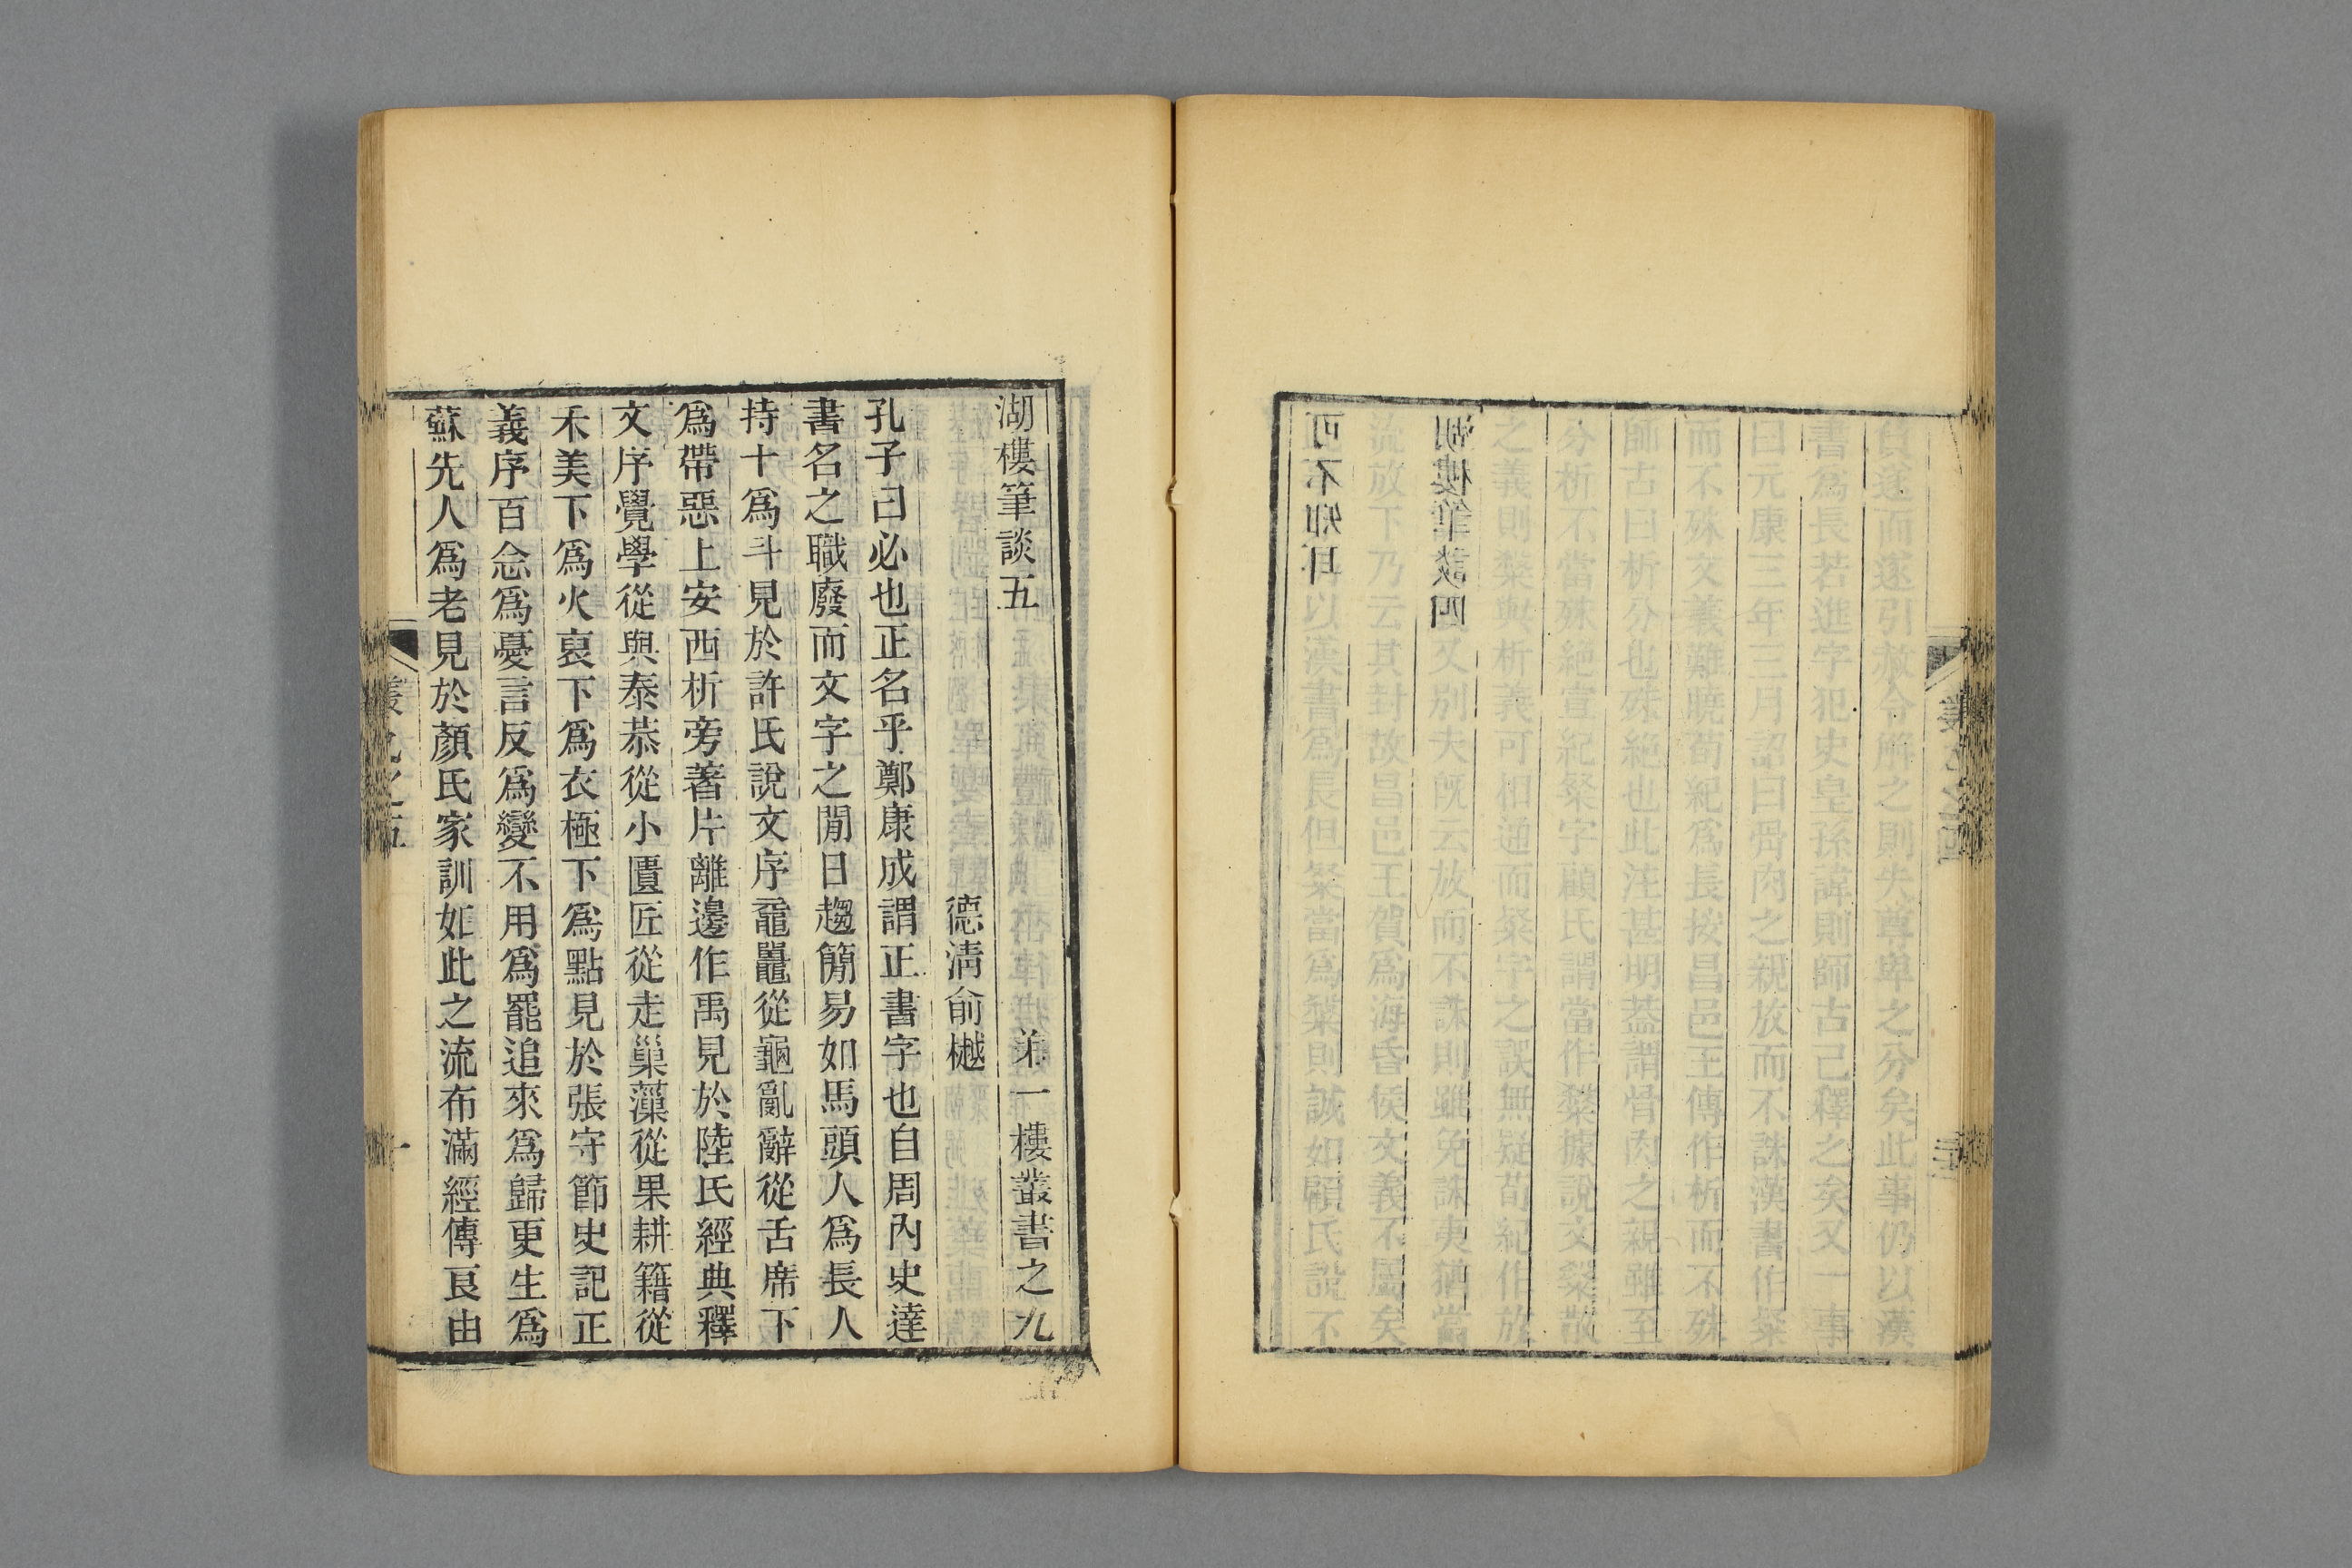 遂而遂引赦令解之則失尊卑之分矣此事仍以漢
書爲長若進字犯史皇孫諱則師古已釋之矣又一事
曰元康三年三月詔曰骨肉之親放而不誅漢書作粲
而不殊文義難曉荀紀爲長按昌邑王傳作析而不殊
師古曰析分也殊絶也此注甚明蓋謂骨肉之親雖至
分析不當殊絶宣紀粲字顧氏謂當作據說文散
之義則與析義可相通而粲字之誤無疑荀紀作放
又別夫旣云放而不誅則雖免誅夷猶當
流放下乃云其封故昌邑王賀爲海昏侯文義不屬矣
以漢書爲長但粲當爲則誠如顧氏說不
可不知耳
湖樓筆談四
湖樓筆談五　弟一樓叢書之九
德清俞樾
孔子曰必也正名乎鄭康成謂正書字也自周內史達
書名之職廢而文字之閒日趨簡易如馬頭人爲長人
持十爲斗見於許氏說文序黿鼉從龜亂辭從舌席下
爲帶惡上安西析旁著片離邊作禹見於陸氏經典釋
文序覺學從與泰恭從小匱匠從走巢藻從果耕籍從
禾美下爲火裒下爲衣極下爲點見於張守節史記正
義序百念爲憂言反爲變不用爲罷追來爲歸更生爲
蘇先人爲老見於顏氏家訓如此之流布滿經傳良由
叢九之五
一